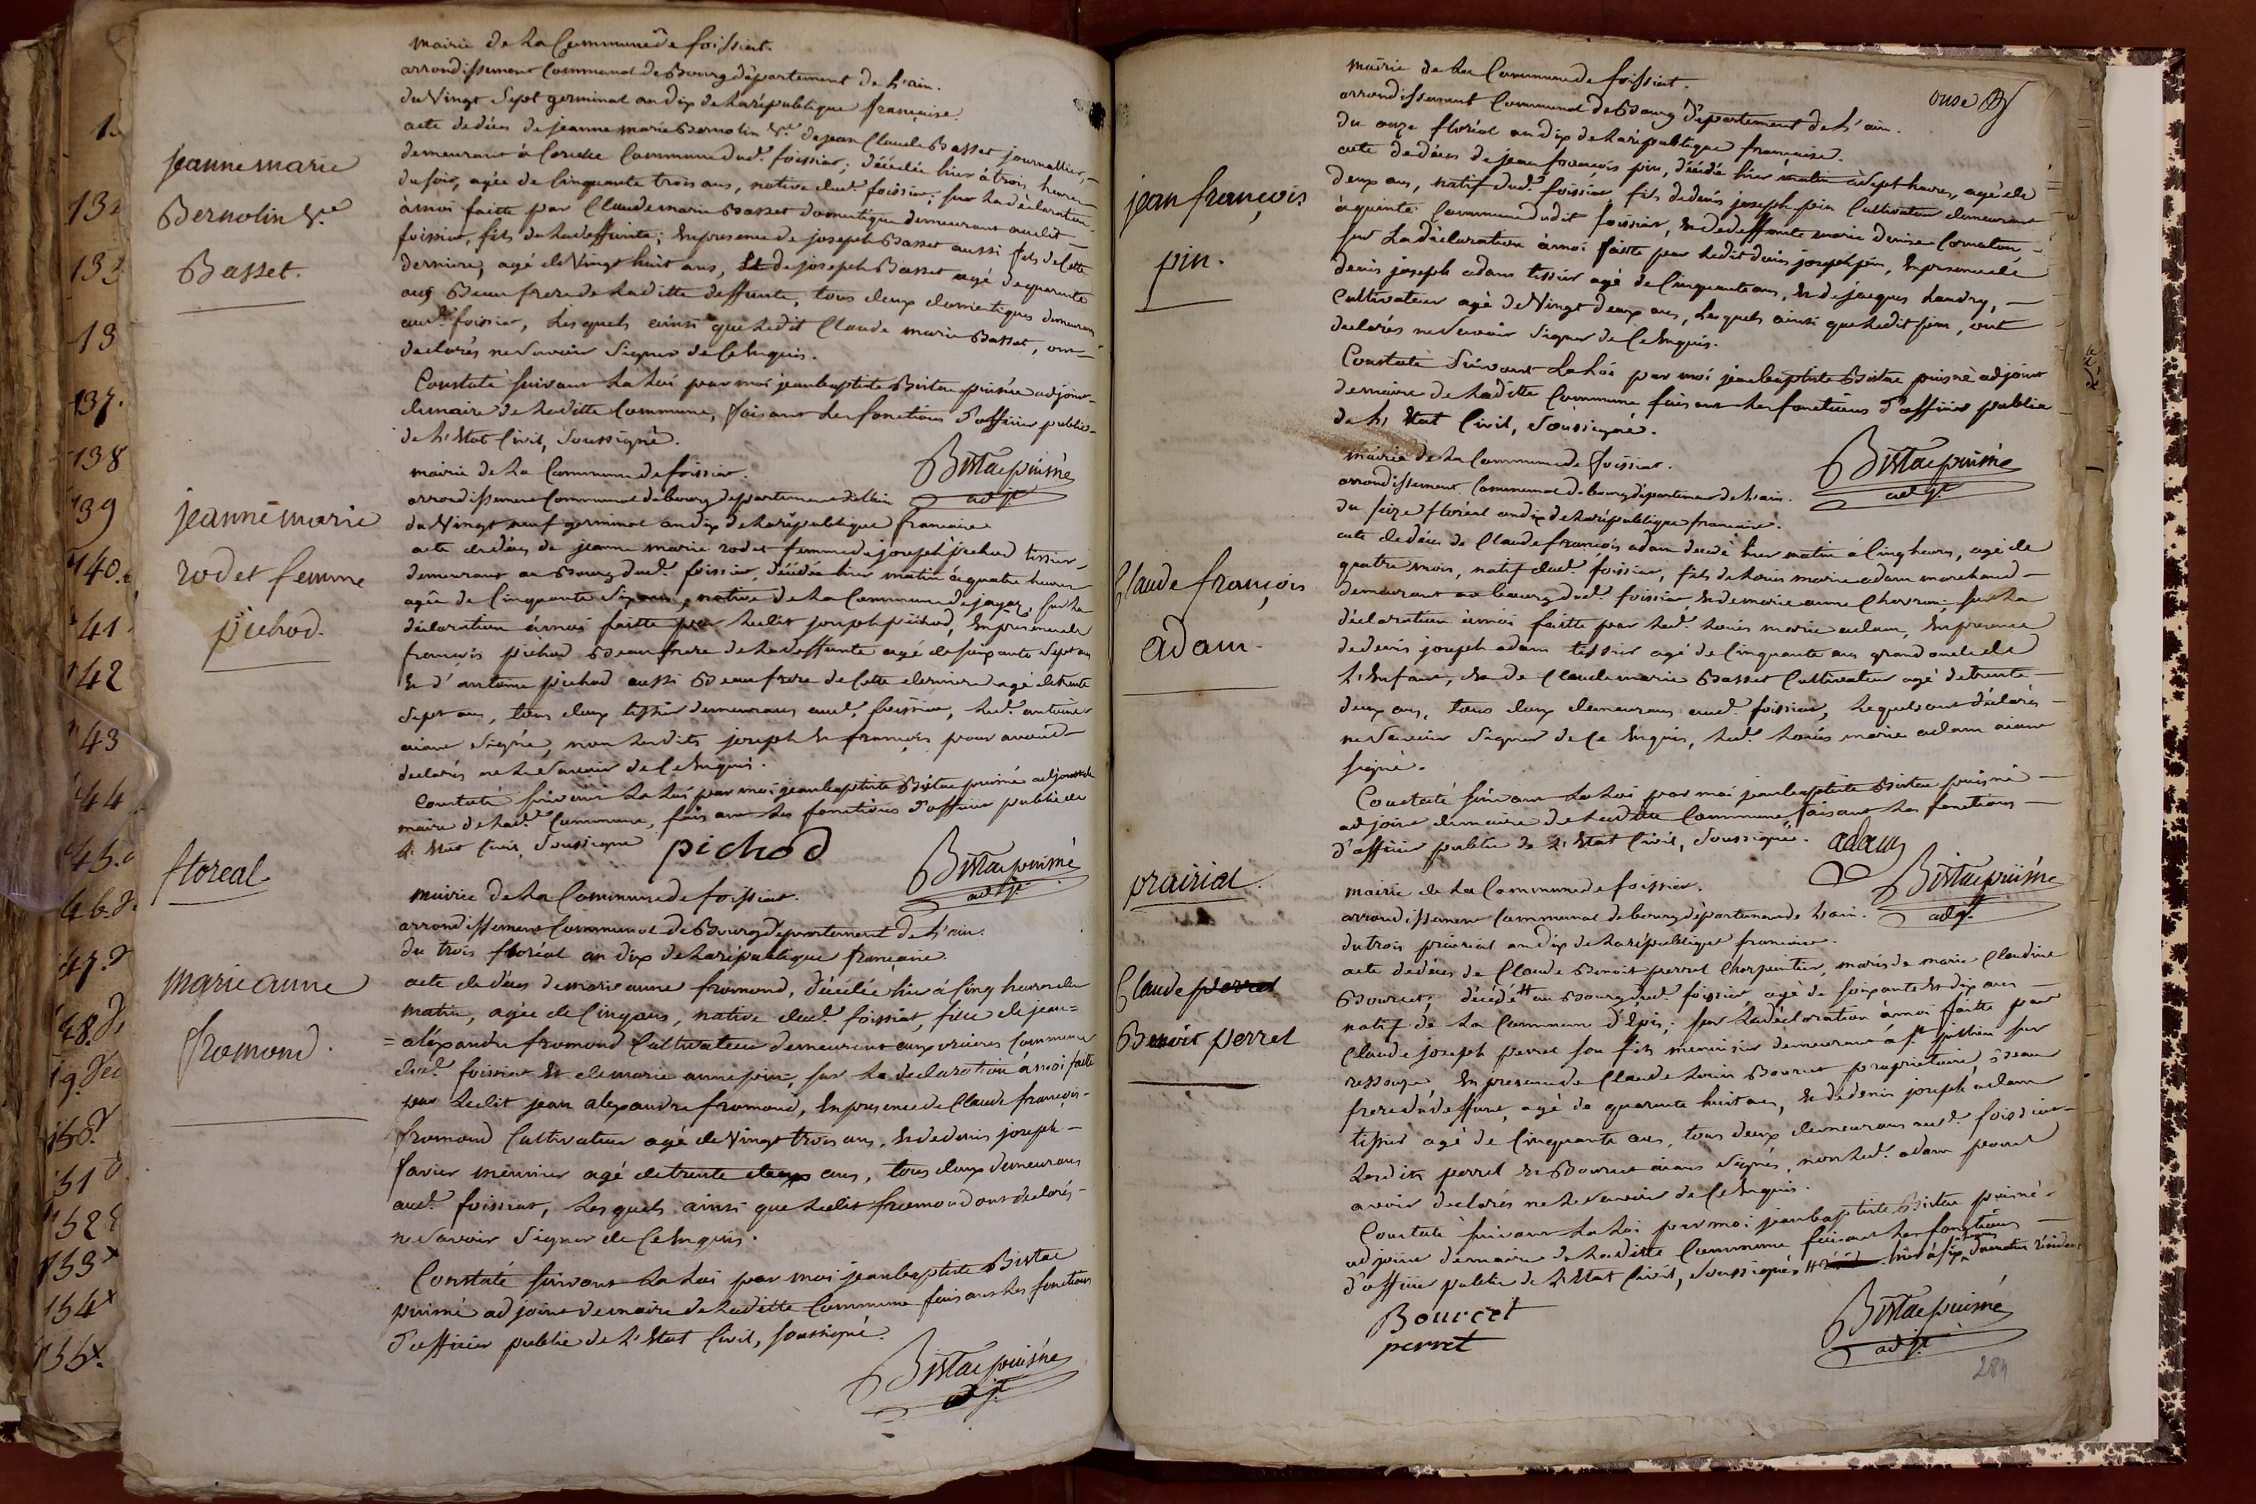 mairie de la Commune de foissiat.
arrondissement Communal de Bourg département de l'ain.
du Vingt Sept germinal an dix de la république française.
acte de déces de jeanne marie Bernolin Ve. de jean Claude Basset journallier,
demeurant à Commune dud. foissiat; décédée hier à trois heures
du soir, agée de Cinquante trois ans, native dud. foissiat; sur la déclaration
àmoi faitte par Claude marie Basset domestique demeurant audit
foissiat, fils de la deffunte; En présence de joseph Basset aussi fils de Cette
derniere, agé de Vingt huit ans, Et de joseph Basset agé de quarante
ans Beau frere de laditte deffunte, tous deux domestiques demeurans
aud. foissiat, Lesquels ainsi que Ledit Claude marie Basset, ont
declarés ne Savoir Signer de Ce Enquis.
Constaté suivant La Loi par moi jean baptiste Bistac puisné adjoint
demaire de laditte Commune, faisant Les fonctions d'officier public
de L'Etat Civil, Soussigné.
Bistac puisné
adjt
jeanne marie
Bernolin Ve
Basset.
mairie de la Commune de foissiat.
arrondissement Communal de bourg département de l'ain
du Vingt neuf germinal an dix de la république francaise
acte de déces de jeanne marie rodet femme de joseph pichod tissier
demeurant au Bourg dud. foissiat, décédée hier matin à quatre heures
agée de Cinquante Six ans, native de la Commune de jayat, sur la
déclaration àmoi faitte par Ledit joseph pichod, En présence de
françois pichod Beau frere de la deffunte agé de soixante Sept ans
Et d'antoine pichod aussi Beau frere de Cette derniere agé de trente
Sept ans, tous deux tissier demeurans aud. foissiat, Led. antoine
aiant Signé, non Lesdits joseph Et françois pour avoir
declarés ne Le Savoir de Ce Enquis.
Constaté suivant La Loi par moi jean baptiste Bistac puisné adjoint de
maire de lad. Commune, faisant Les fonctions d'officier public de
L'Etat Civil, Soussigné
pichod
Bistac puisné
adjt
jeanne marie
rodet femme
pichod.
floreal
mairie de la Commune de foissiat.
arrondissement Communal de Bourg département de l'ain.
du trois floréal an dix de la république française
acte de déces de marie anne fromond, décédée hier à Cinq heures du
matin, agée de Cinq ans, native dud. foissiat, fille de jean=
=aléxandre fromond Cultivateur demeurant aux Commune
dud. foissiat Et de marie anne pin, sur La declaration à moi faitte
par Ledit jean alexandre fromond, En présence de Claude françois
fromond Cultivateur agé de Vingt trois ans, Et de denis joseph
favier meunier agé de trente deux ans, tous deux demeurans
aud. foissiat, Lesquels ainsi que Ledit fromond ont declarés
ne Savoir Signer de Ce Enquis.
Constaté suivant La Loi par moi jean baptiste Bistac
puisné adjoint de maire de laditte Commune faisant Les fonctions
d'officier public de L'Etat Civil, soussigné.
Bistac puisné
adjt
marie anne
fromond.
1
13
133
13
137.
138
139
140.
141
142
143
144
145.
146.
147.
148.
151
152
153x
154x
155x
onse
mairie de la Commune de foissiat.
arrondissement Communal de Bourg département de l'ain.
du onze floréal an dix de la république française.
acte de déces de jean françois pin, décédé hier matin à Sept heures, agé de
deux ans, natif dud. foissiat fils de denis joseph pin Cultivateur demeurant
Commune dudit foissiat, Et de deffunte marie denise
sur La déclaration à moi faitte par Ledit denis joseph pin, En présence de
denis joseph adam tissier agé de Cinquante ans, Et de jacques Landry,
Cultivateur agé de Vingt deux ans, Lesquels ainsi que Ledit pin, ont
declarés ne Savoir Signer de Ce Enquis.
Constaté Suivant La Loi par moi jean baptiste Bistac puisné adjoint
de maire de laditte Commune faisant Les fonctions d'officier public
de L'Etat Civil, Soussigné.
Bistac puisné
adjt
jean françois
pin.
mairie de la Commune de foissiat.
arrondissement Communal de bourg département de l'ain.
du seize floreal an dix de la république francaise.
acte de déces de Claude françois adam decedé hier matin à Cinq heures, agé de
quatre mois, natif dud. foissiat, fils de Louis marie adam marchand
demeurant au bourg dud. foissiat Et de marie anne sur La
déclaration à moi faitte par Led. Louis marie adam, En présence
de denis joseph adam tissier agé de Cinquante ans grand oncle de
L'Enfant, Et de Claude marie Basset Cultivateur agé de trente
deux ans, tous deux demeurans aud. foissiat, Lequels ont déclarés
ne Savoir Signer de Ce Enquis, Led. Louis marie adam aiant
signé.
Constaté suivant La Loi par moi jean baptiste Bistac puisné
adjoint de maire de laditte Commune faisant Les fonctions
d'officier public de L'Etat Civil, Soussigné.
adam
Bistac puisné
adjt
Claude françois
adam.
prairial.
mairie de la Commune de foissiat.
arrondissement Communal de bourg département de l'ain.
du trois prairial an dix de la république francaise.
acte de déces de Claude Benoit perret Charpentier, maris de marie Claudine
Bourcet; décédé H au Bourg dud. foissiat, agé de soixante Et dix ans
natif de la Commune d'Epis; sur La déclaration à moi faitte par
Claude joseph perret son fils menuisier demeurant à St. julien sur
ressouze, En présence de Claude Louis Bourcet propriétaire, Beau
frere du deffunt, agé de quarante huit ans, Et de denis joseph adam
tissier agé de Cinquante ans, tous deux demeurans aud. foissiat
Lesdits perret Et Bourcet aians Signés, non Led. adam pour
avoir declarés ne Le Savoir de Ce Enquis.
Constaté suivant La Loi par moi jean baptiste Bistac puisné
adjoint de maire de laditte Commune faisant Les fonctions
d'officier public de L'Etat Civil, Soussignés H hier à six heures du matin
Bourcet
perret
Bistac puisné
adjt
Claude perret
Benoit perret
284